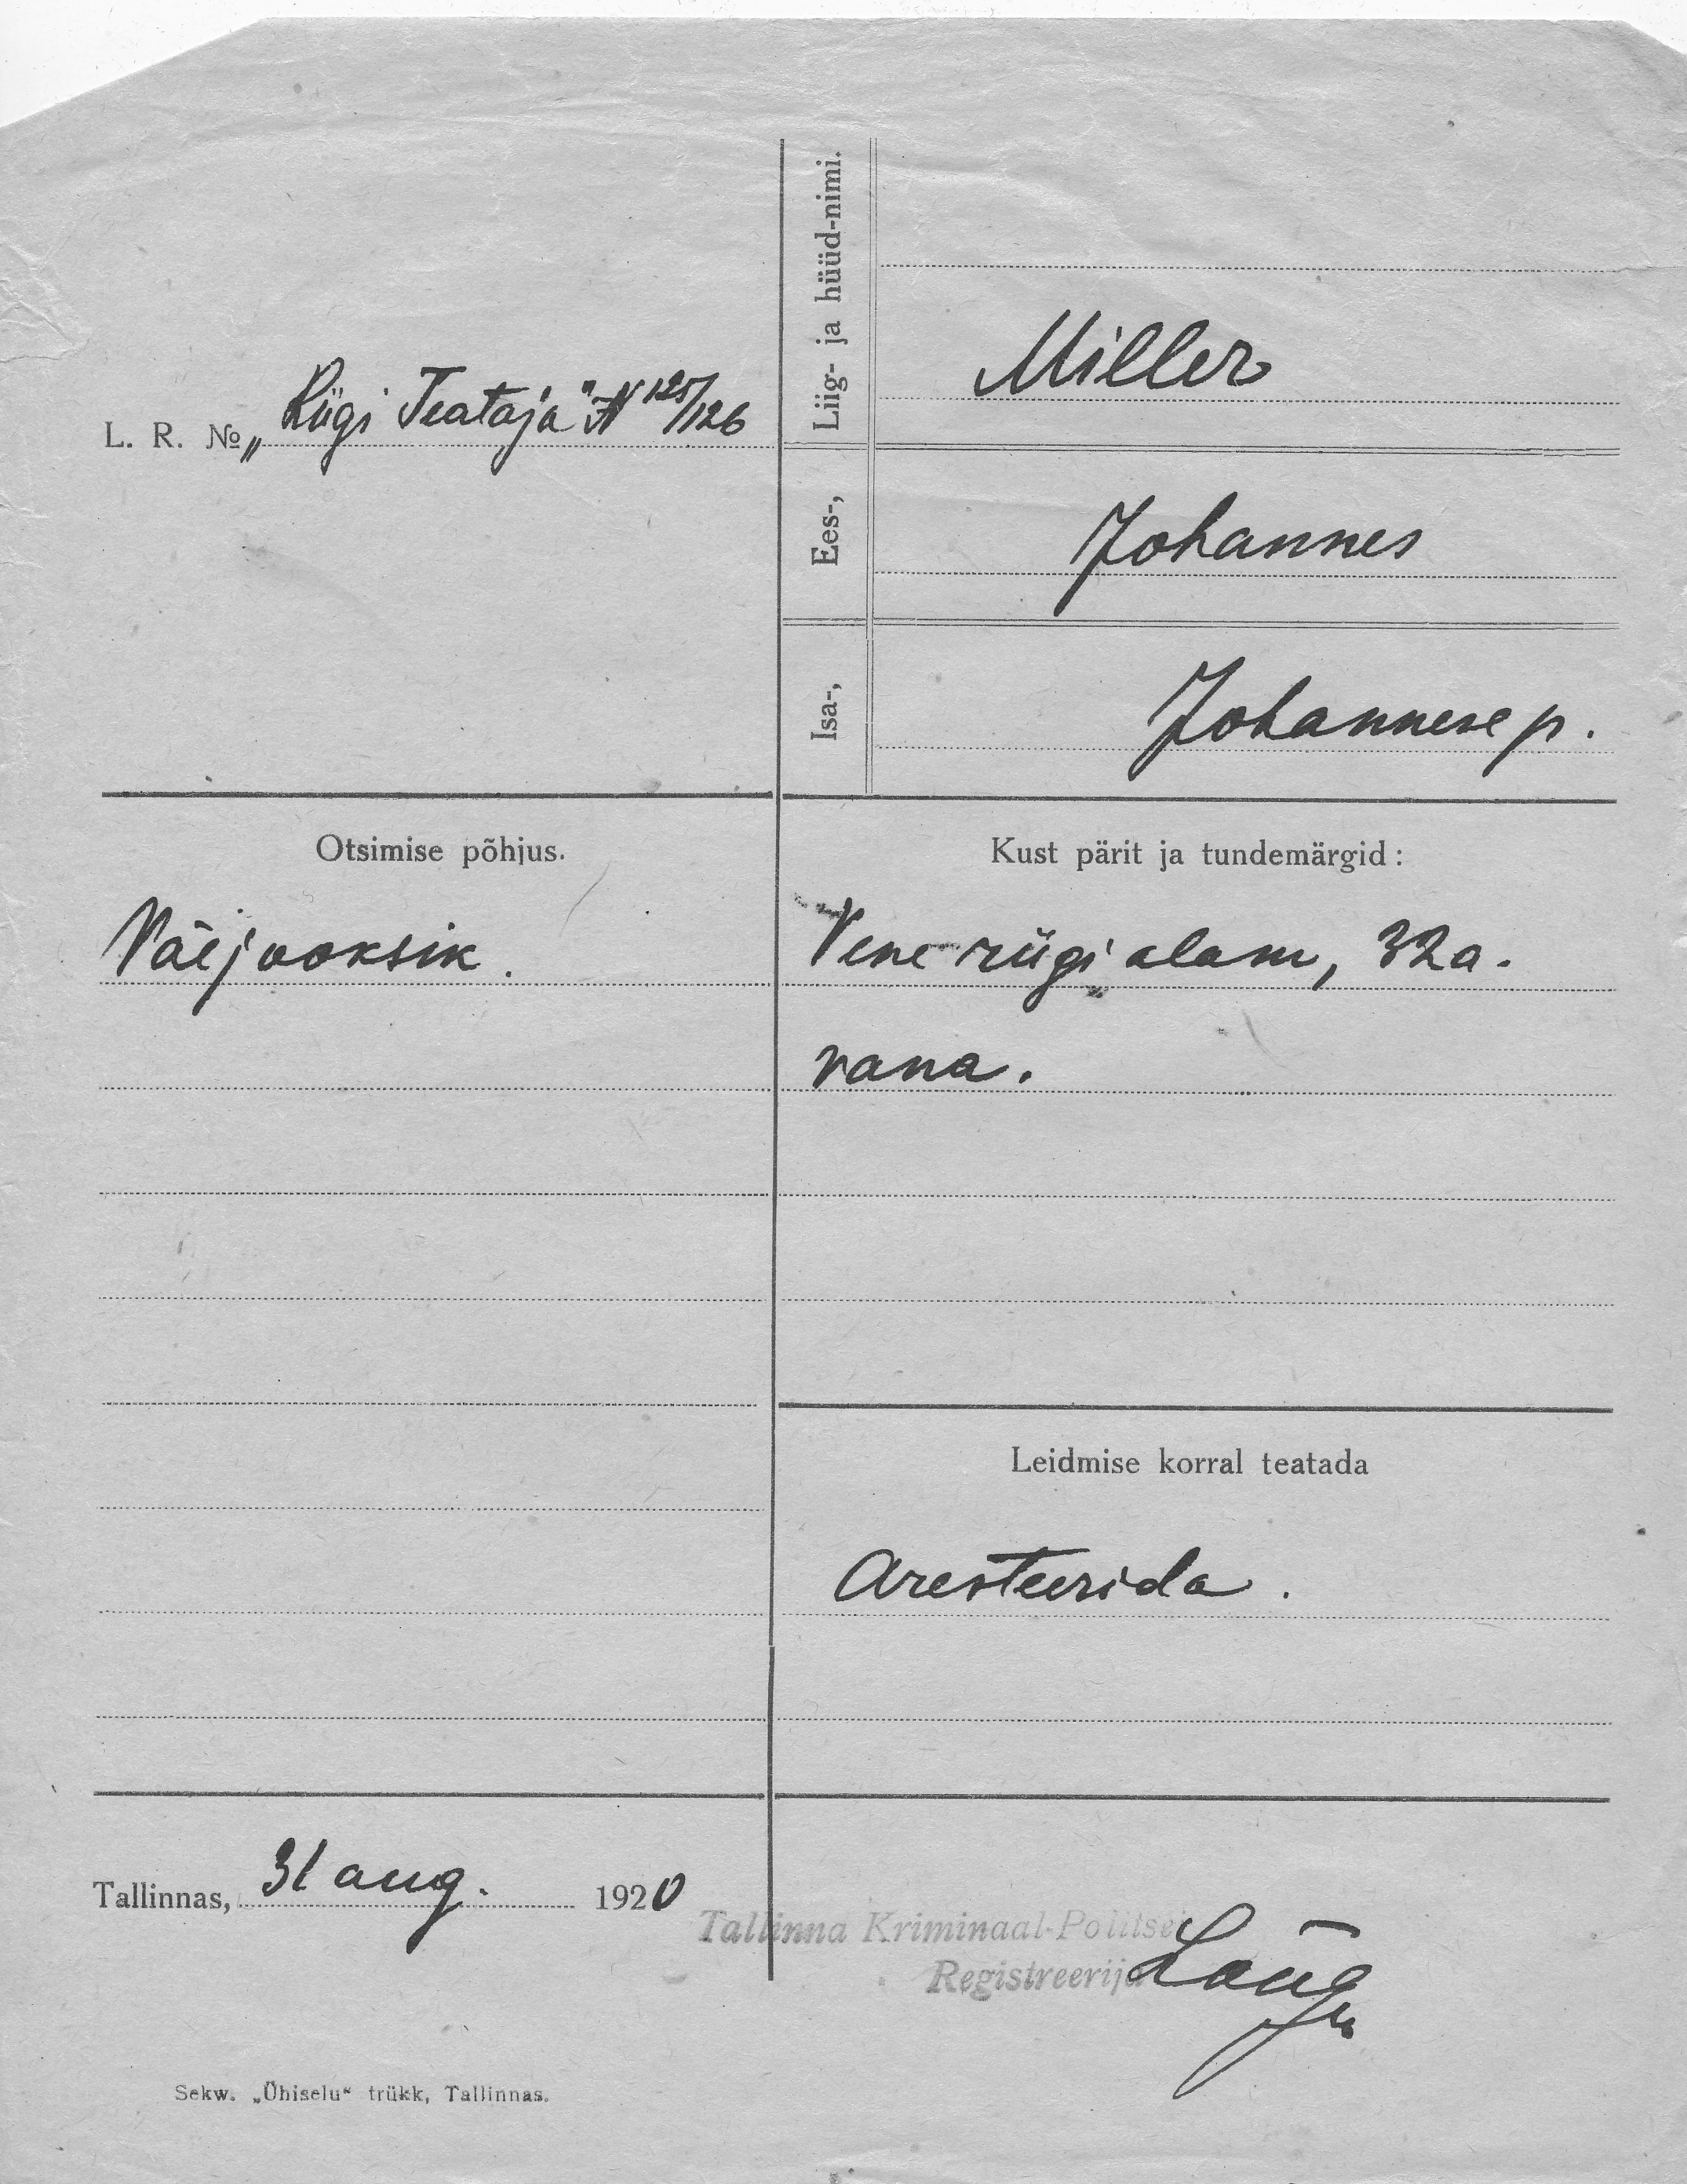 L. R. № „Riigi Teataja" N 125/126
Liig- ja hüüd-nimi.
Miller
Ees-,
Johannes
Isa-,
Johannese p.
Otsimise põhjus.
Väejooksik.
Kust pärit ja tundemärgid:
Vene riigi alam, 32 a.
vana.
Leidmise korral teatada
Aresteerida.
Tallinnas, 31 aug. 1920
Tallinna Kriminaal-Politsei
Registreerija
Sekw. „Ühiselu“ trükk, Tallinnas.